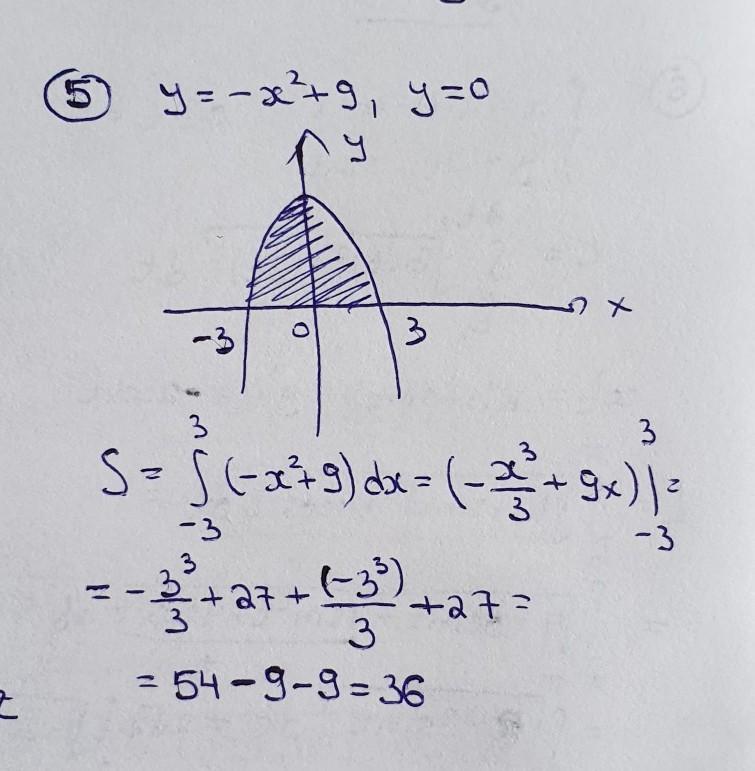 5 y = -x² + 9, y = 0
y
x
-3 0 3
S = ∫₋₃³ (-x² + 9) dx = (-x³/3 + 9x) |₋₃³ =
= -3³/3 + 27 + (-3³)/3 + 27 =
= 54 - 9 - 9 = 36